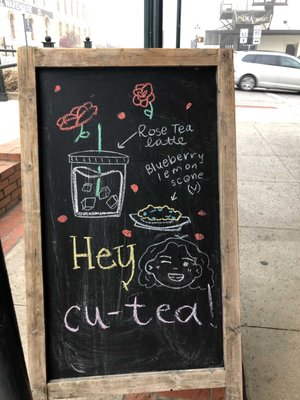 Rose Tea
latte
Blueberry
lemon
scone
(v)
Hey
cu-tea